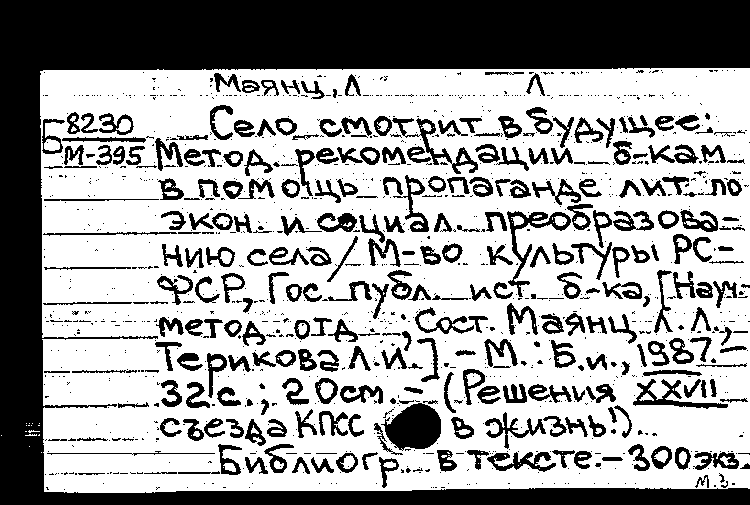 Маянц, Л Л
Б 8230
М-395
Село смотрит в будущее:
Метод. рекомендации б-кам
в помощь пропаганде лит. по
экон. и социал. преобразова-
нию села / М-во культуры РС-
ФСР, Гос. публ. ист. б-ка, [Науч.-
метод. отд.; Сост. Маянц Л.Л.,
Терикова Л.И.]. - М.: Б.и., 1987.-
32 с.; 20см. - (Решения XXVII
съезда КПСС в жизнь!)..
Библиогр. в тексте.- 300 экз.
М.З.